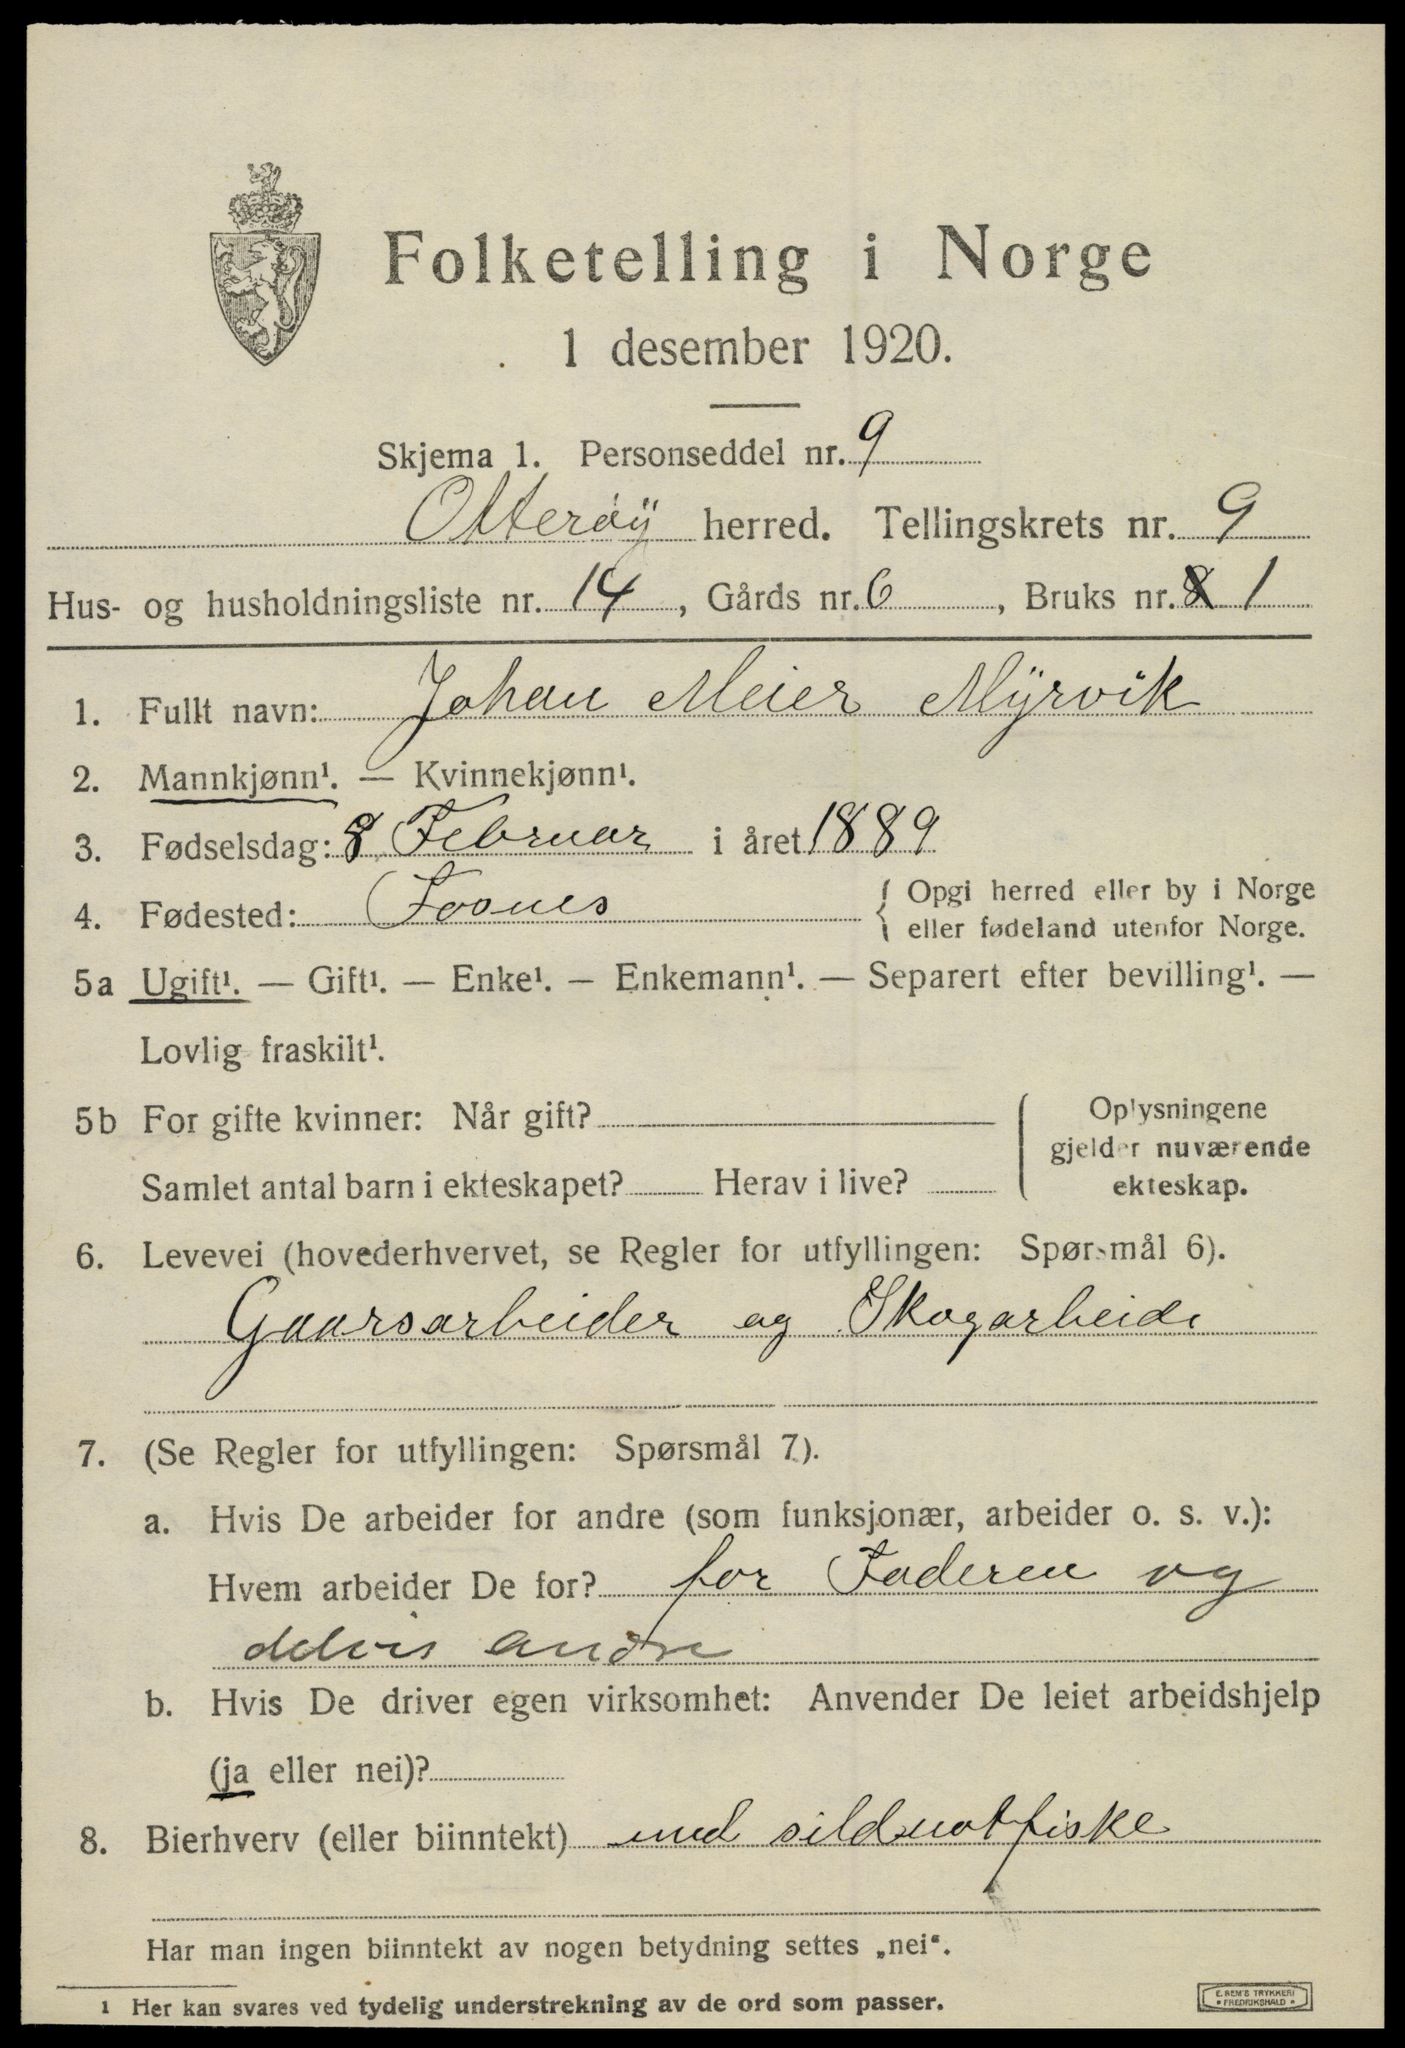 Folketelling i Norge
1 desember 1920.
Skjema 1. Personseddel nr. 9
Otterøÿ herred. Tellingskrets nr. 9
Hus- og husholdningsliste nr. 14, Gårds nr. 6, Bruks nr. 8 1
1. Fullt navn: Johan Meier Mÿrvik
2. Mannkjønn¹. — Kvinnekjønn¹.
3. Fødselsdag: 8 Februar i året 1889
4. Fødested: Fosnes { Opgi herred eller by i Norge
eller fødeland utenfor Norge.
5a Ugift¹. — Gift¹. — Enke¹. — Enkemann¹. — Separert efter bevilling¹. —
Lovlig fraskilt¹.
5b For gifte kvinner: Når gift? Oplysningene
gjelder nuværende
Samlet antal barn i ekteskapet? Herav i live? ekteskap.
6. Levevei (hovederhvervet, se Regler for utfyllingen: Spørsmål 6).
Gaarsarbeider og Skogarbeide
7. (Se Regler for utfyllingen: Spørsmål 7).
a. Hvis De arbeider for andre (som funksjonær, arbeider o. s. v.):
Hvem arbeider De for? for Faderen og
delvis andre
b. Hvis De driver egen virksomhet: Anvender De leiet arbeidshjelp
(ja eller nei)?
8. Bierhverv (eller biinntekt) med sildnotfiske
Har man ingen biinntekt av nogen betydning settes „nei“.
1 Her kan svares ved tydelig understrekning av de ord som passer.
E. SEM'S TRYKKERI
• FREDRIKSHALD •